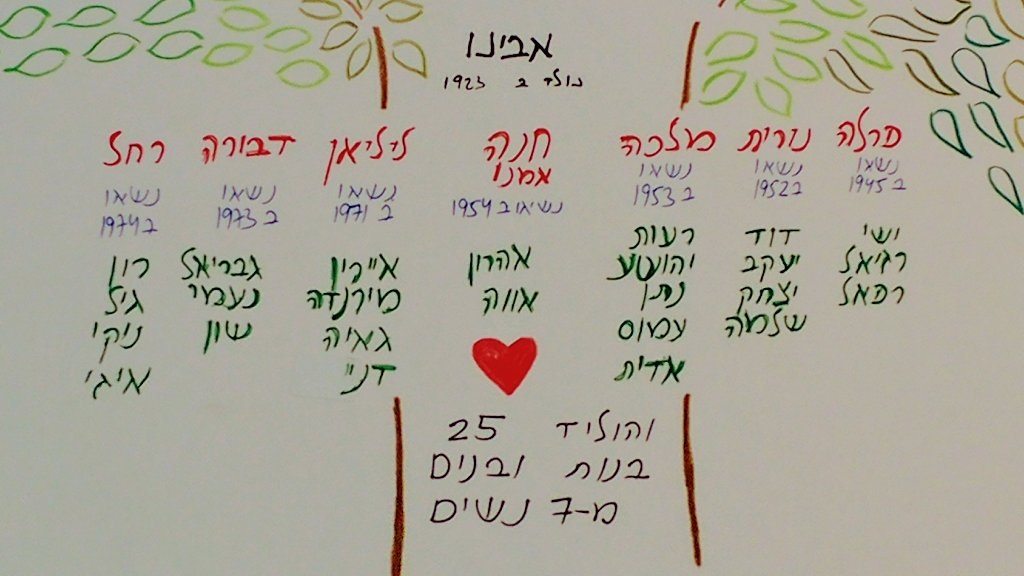 אבינו
נולד ב 1923
פרלה
נשאו
ב 1945
ישי
רגיאל
רפאל
נורית
נשאו
ב 1952
דוד
יעקב
יצחק
שלמה
מלכה
נשאו
ב 1953
רעות
יהושע
נתן
עמוס
אדית
חנה
אמני
נשאו ב 1954
אהרון
אווה
ליליאן
נשאו
ב 1971
איירין
מירנדה
גאיה
דני
דבורה
נשאו
ב 1973
גבריאל
נעמי
שון
רחל
נשאו
ב 1974
רון
גיל
ניקי
איגי
והוליד 25
בנות ובנים
מ-7 נשים